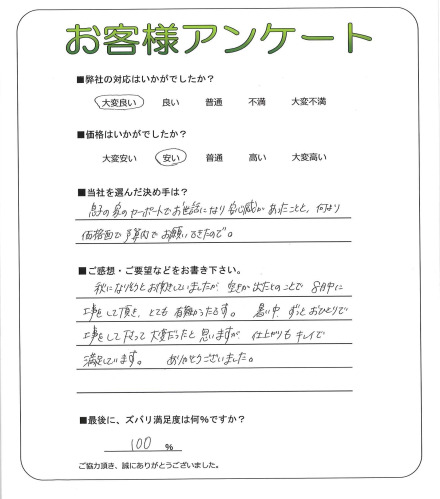 お客様アンケート
■弊社の対応はいかがでしたか?
大変良い 良い 普通 不満 大変不満
■価格はいかがでしたか?
大変安い 安い 普通 高い 大変高い
■当社を選んだ決め手は?
息子の家のカーポートでお世話になり安心感があったことと、何より
価格面で予算内でお願いできたので。
■ご感想・ご要望などをお書き下さい。
秋になりそうとお伺いしていましたが、空きが出たとのことで8月中に
工事をして頂き、とても有難かったです。暑い中、ずっとおひとりで
工事をして下さって大変だったと思いますが、仕上がりもキレイで
満足しています。ありがとうございました。
■最後に、ズバリ満足度は何%ですか?
100 %
ご協力頂き、誠にありがとうございました。